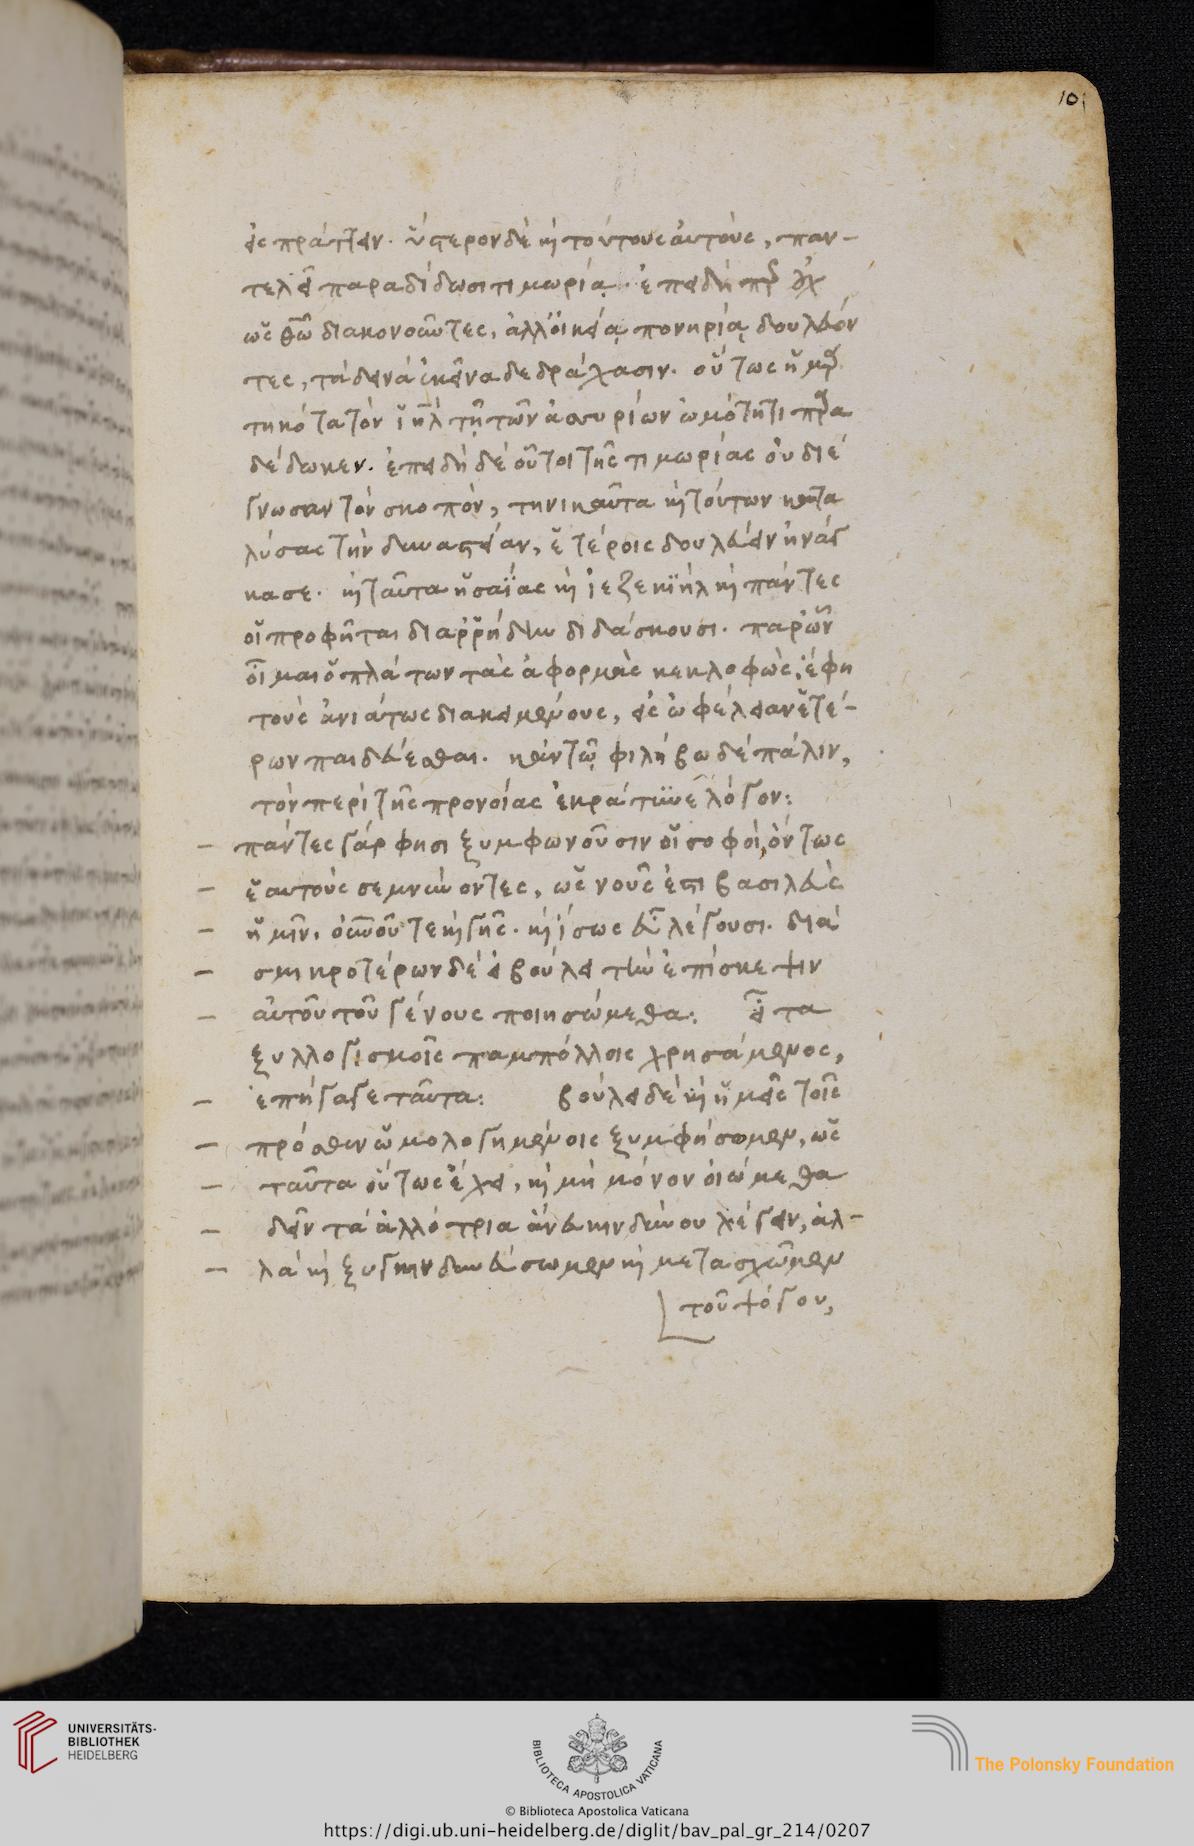 101
εἰσπράττειν. ὕστερον δὲ κ̀ τούτους αὐτοὺς, παν-
τελεῖ παραδίδωσι τιμωρίᾳ. ἐπειδήπερ οὐχ
ὡς θεῷ διακονοῦντες, ἀλλ' οἰκείᾳ πονηρίᾳ δουλεύον
τες, τὰ δεινὰ ἐκεῖνα δεδράκασιν. οὕτως ἡμαρ
τηκότα τὸν ἰηλ τῇ τῶν ἀσσυρίων ὠμότητι παρα
δέδωκεν. ἐπειδὴ δὲ οὗτοι τῆς τιμωρίας οὐ διέ
γνωσαν τὸν σκοπὸν, τηνικαῦτα κ̀ τούτων κατα
λύσας τὴν δυναστείαν, ἑτέροις δουλεύειν ἠνάγ
κασε. κ̀ ταῦτα ἡσαΐας κ̀ ἰεζεκιὴλ κ̀ πάντες
οἱ προφῆται διαρρήδην διδάσκουσι. παρ' ὧν
οἶμαι ὁ πλάτων τὰς ἀφορμὰς κεκλοφὼς, ἔφη
τοὺς ἀνιάτως διακειμένους, εἰς ὠφέλειαν ἑτέ-
ρων παιδεύεσθαι. κἀν τῷ φιλήβῳ δὲ πάλιν,
τὸν περὶ τῆς προνοίας ἐκράτυνε λόγον:
πάντες γάρ φησι ξυμφωνοῦσιν οἱ σοφοὶ, ὄντως
ἑαυτοὺς σεμνύνοντες, ὡς νοῦς ἐστι βασιλεὺς
ἡμῖν, οὐνοῦ τε κ̀ γῆς. κ̀ ἴσως εὖ λέγουσι. διὰ
σμικροτέρων δὲ εἰ βούλει τὴν ἐπίσκεψιν
αὐτοῦ τοῦ γένους ποιησώμεθα: εἶτα
ξυλλογισμοῖς παμπόλλοις χρησάμενος,
ἐπήγαγε ταῦτα: βούλει δὲ κ̀ ἡμεῖς τοῖς
πρόσθεν ὡμολογημένοις ξυμφήσωμεν, ὡς
ταῦτα οὕτως ἔχει, κ̀ μὴ μόνον οἰώμεθα
δεῖν τὰ ἀλλότρια ἄνευ κινδύνου λέγειν, ἀλ-
λὰ κ̀ ξυγκινδυνεύσωμεν κ̀ μετάσχωμεν
τοῦ ψόγου,
UNIVERSITÄTS-
BIBLIOTHEK
HEIDELBERG
BIBLIOTECA APOSTOLICA VATICANA
The Polonsky Foundation
© Biblioteca Apostolica Vaticana
https://digi.ub.uni-heidelberg.de/diglit/bav_pal_gr_214/0207